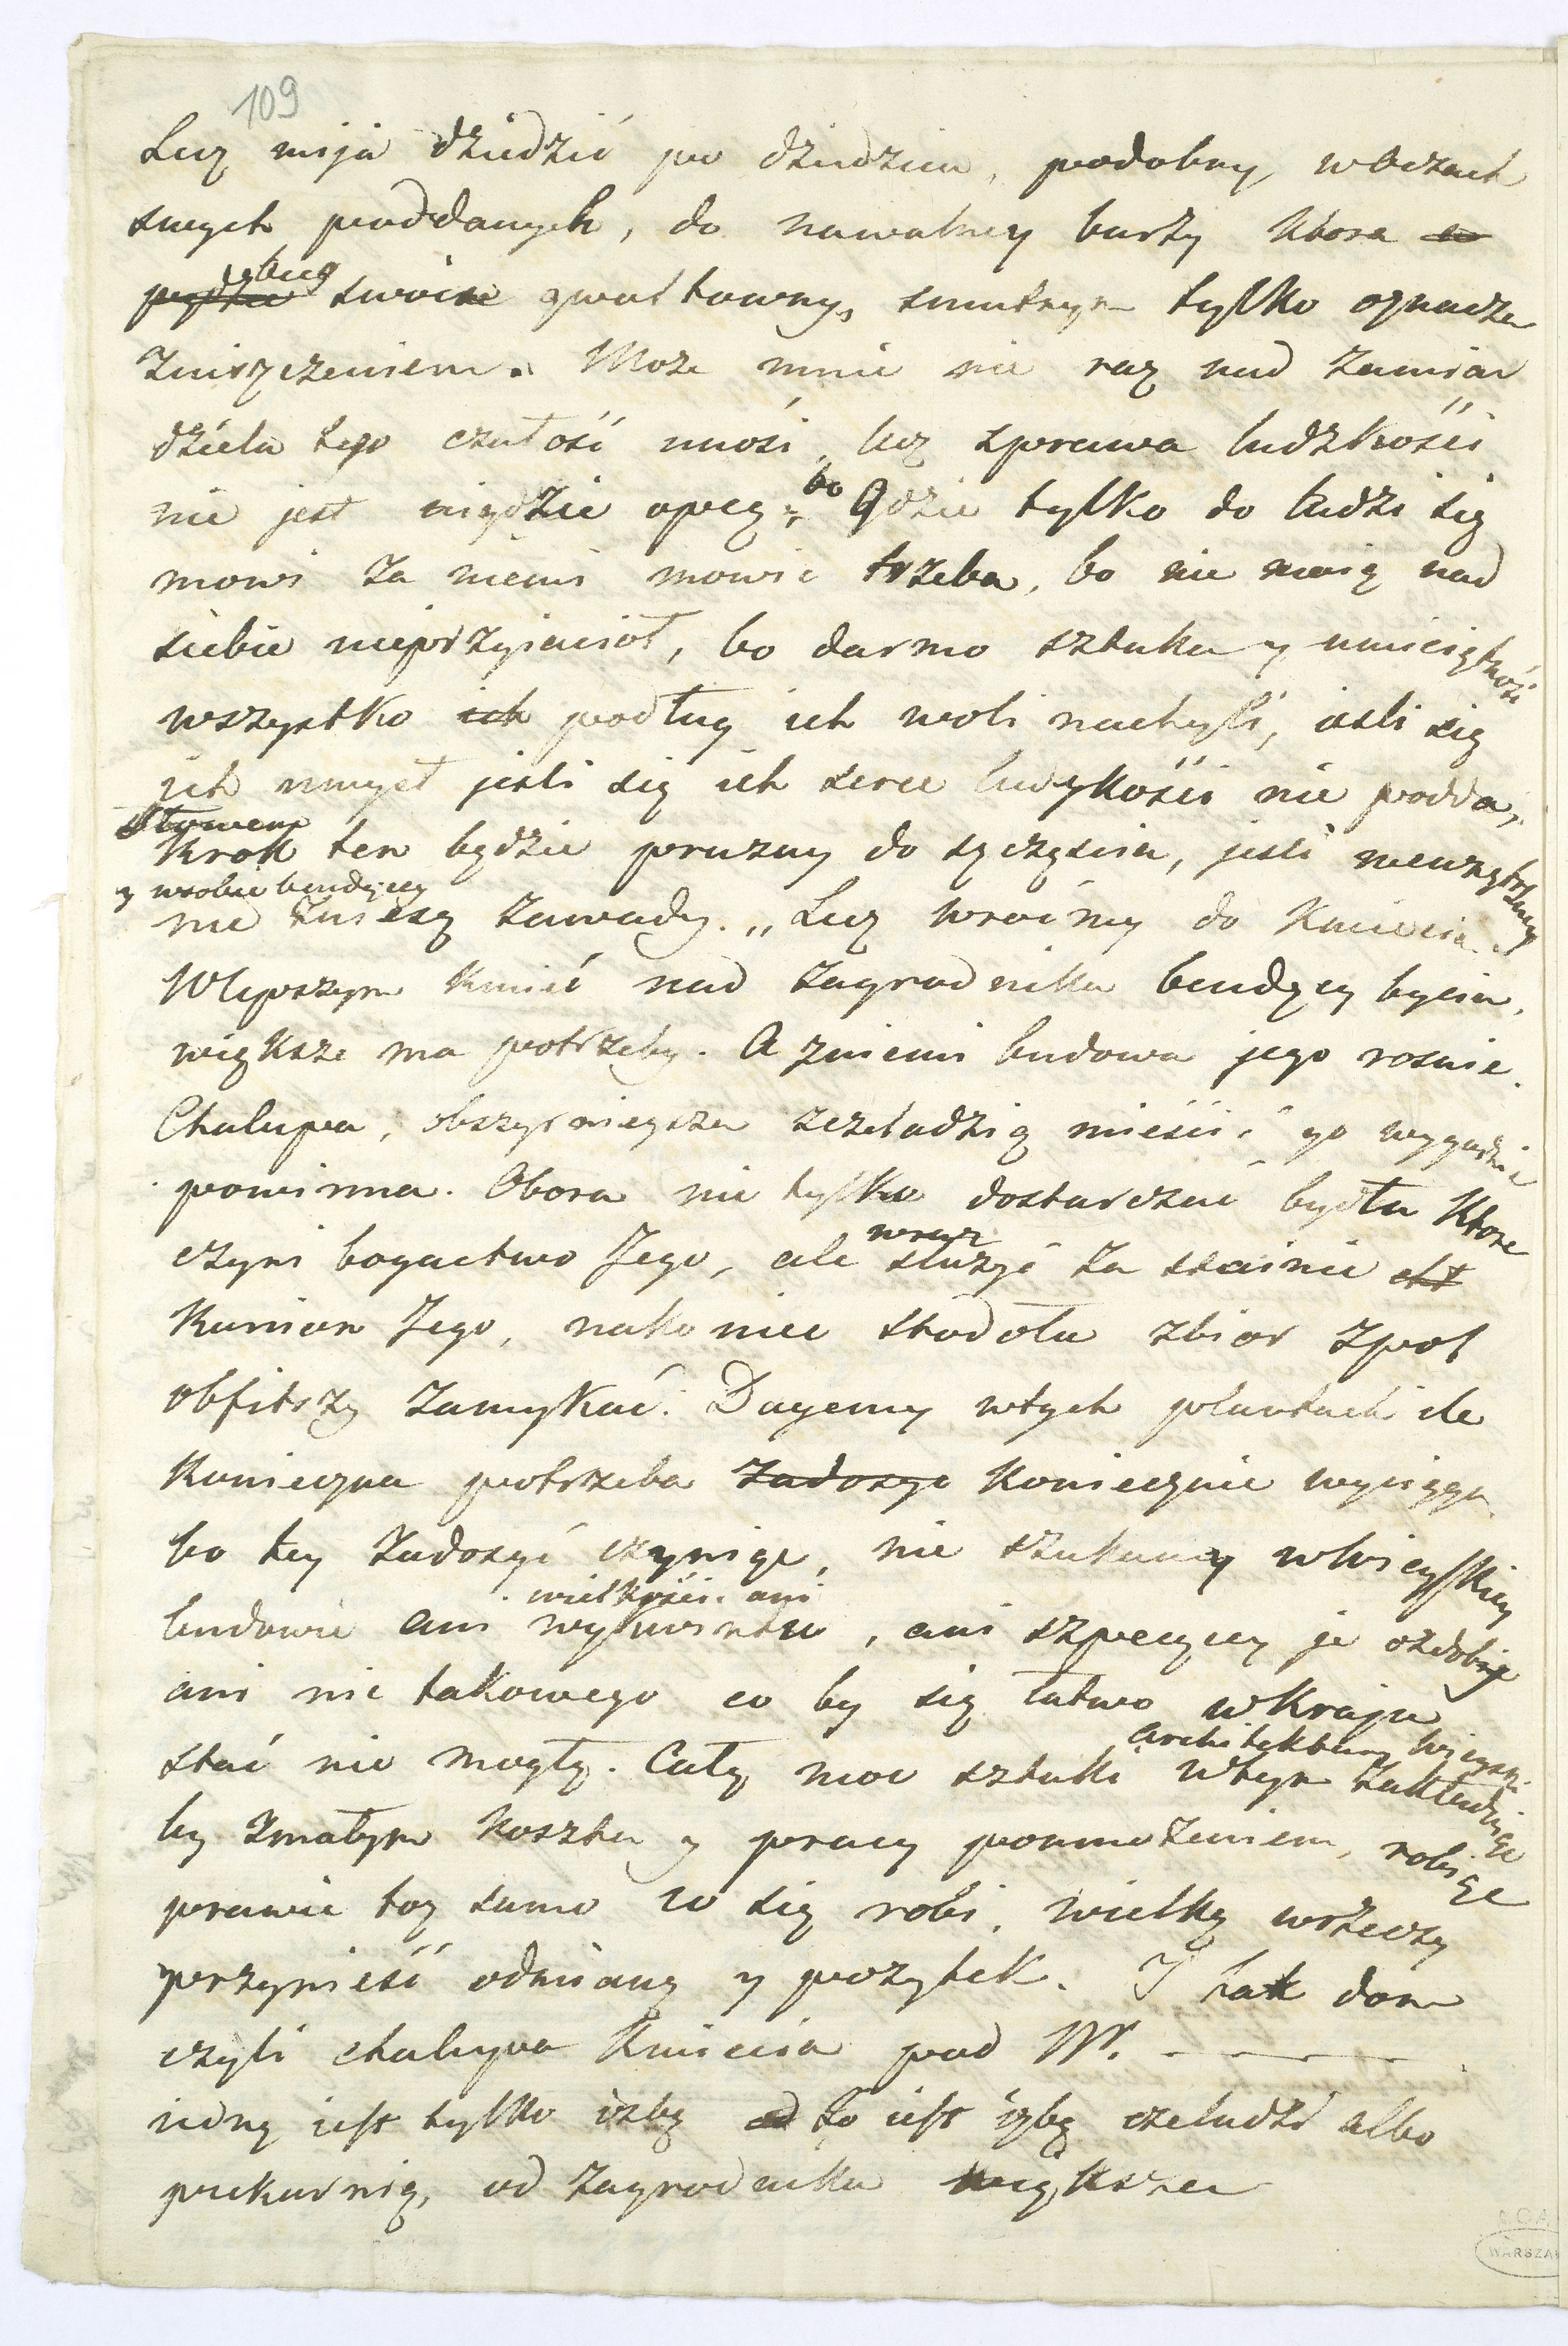 109
Lecz mija dziedzic po dziedzicu, podobny w oczach
swych poddanych, do nawalney burzy ktora w
pędzie bieg swoie gwałtowny, smutnym tylko oznacza
zniszczeniem. Może mnie nie raz nad zamiar
dzieła tego czułość unosi, lecz sprawa ludzkości
nie jest nigdzie opcą, bo Gdzie tylko do ludzi się
mowi za niemi mowić trzeba, bo nie maią nad
siebie nieprzyiaciół, bo darmo sztuka y umieiętność
wszystko ich podług ich woli nachyli, ieśli się
ich umysł jeśli się ich serce ludzkości nie podda,
Słowem
Krok ten będzie prużny do szczęścia, jeśli wewnętrzney
y wsobie bendącey
nie zniesą zawady. „ Lecz wróćmy do Kmiecia.
W lepszym kmieć nad zagrodnika bendący byciu,
większe ma potrzeby. A zniemi budowa jego rosnie.
Chalupa, obszyrnieysza zczeladzią mieścić go wygodnie
powinna. Obora nie tylko dostarczać bydła ktore
czyni bogactwo Jego, ale wraz służyć za stainie
Koniom Jego, nakoniec stodoła zbior zpol
obfitszy zamykać. Dayemy wtych plantach ile
Konieczna potrzeba zadosyc koniecznie wyciąga
bo tey zadosyć czyniąc, nie szukamy w wieyskiey
budowie ani wielkości ani wykwintu, ani szpecący je ozdoby
ani nic takowego co by się łatwo w Kraju
stać nie mogły. Całą moc sztuki Architektury wieyski
wtym zakładaiąc
by zmałym kosztu y pracy pomnożeniem, robiąc
prawie toż samo co się robi, wielką wrzeczy
przynieść odmianę y pożytek. I tak dom
czyli chalupa Kmiecia pod Nr. - - - -
iedną iest tylko izbą to iest izbą czeladzi albo
piekarnią, od zagrodnika większa